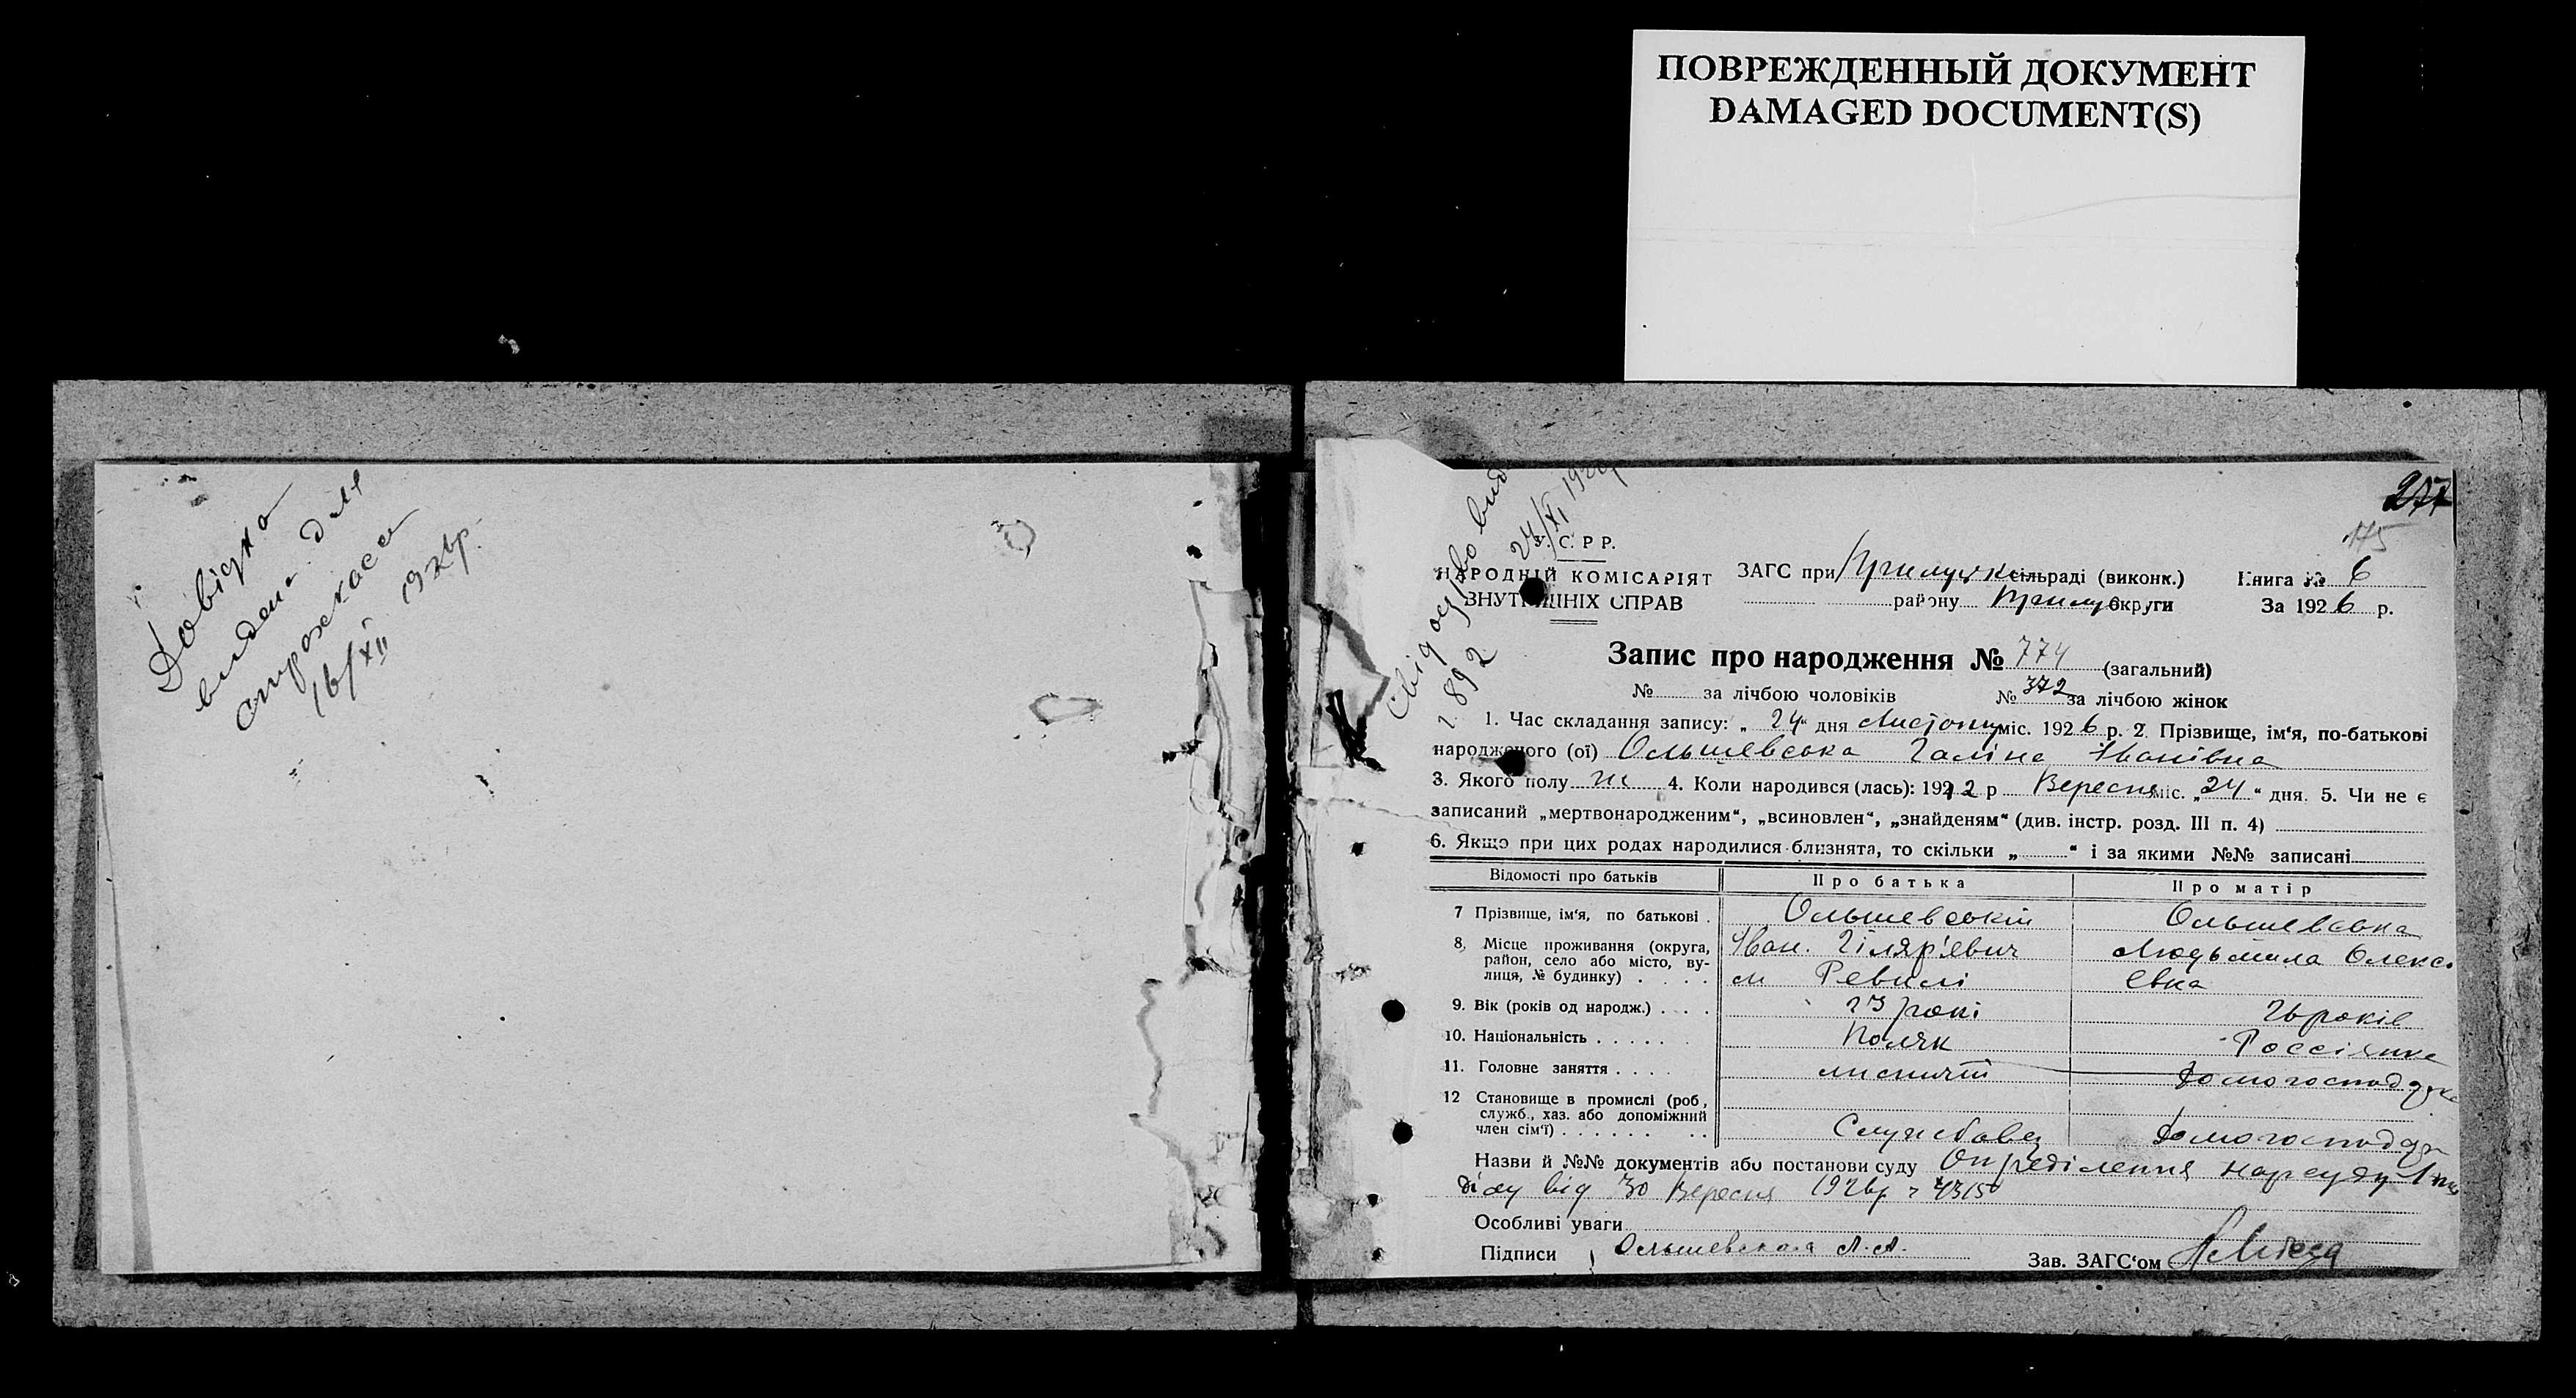 ПОВРЕЖДЕННЫЙ ДОКУМЕНТ
DAMAGED DOCUMENT(S)
Довідка
видана для
16/XII 1926р.
277
175
Свідоцтво вид
27/XI 1926р
1892
У. С. Р Р.
НАРОДНІЙ КОМІСАРІЯТ
ВНУТРІШНІХ СПРАВ
ЗАГС при Прилуцьк сільраді (виконк.)
району Прилуц округи
Книга № 6
За 1926 р.
Запис про народження № 774 (загальний)
№ за лічбою чоловіків № 372 за лічбою жінок
1. Час складання запису: „ 24 “ дня Листопад міс. 1926 р. 2. Прізвище, ім‘я, по-батькові
народженого (ої) Ольшевська Галіна Іванівна
3. Якого полу ж 4. Коли народився (лась): 1922 р Вересня міс. „ 24 “ дня. 5. Чи не є
записаний „мертвонародженим“, „всиновлен“, „знайденям“ (див. інстр. розд. III п. 4)
6. Якщо при цих родах народилися близнята, то скільки „ “ і за якими №№ записані
Відомості про батьків Про батька Про матір
7 Прізвище, ім‘я, по батькові . Ольшевський Ольшевська
8. Місце проживання (округа, район, село або місто, вулиця, № будинку) . . . . Іван. Гіляр'евич Людьмила Олекс.
м Ревилі евна
9. Вік (років од народж.) . . . . 23 рокі 26 років
10. Національність . . . . . . Поляк Россіянка
11. Головне заняття . . . . Домогосподарка
12 Становище в промислі (роб., служб., хаз. або допоміжний член сім‘ї) . . . . . . . . Службовец Домогосподар
Назви й №№ документів або постанови суду Опреділення нарсуду 1
від 30 Вересня 1926р
Особливі уваги
Підписи Ольшевская Л.А. Зав. ЗАГС‘ом